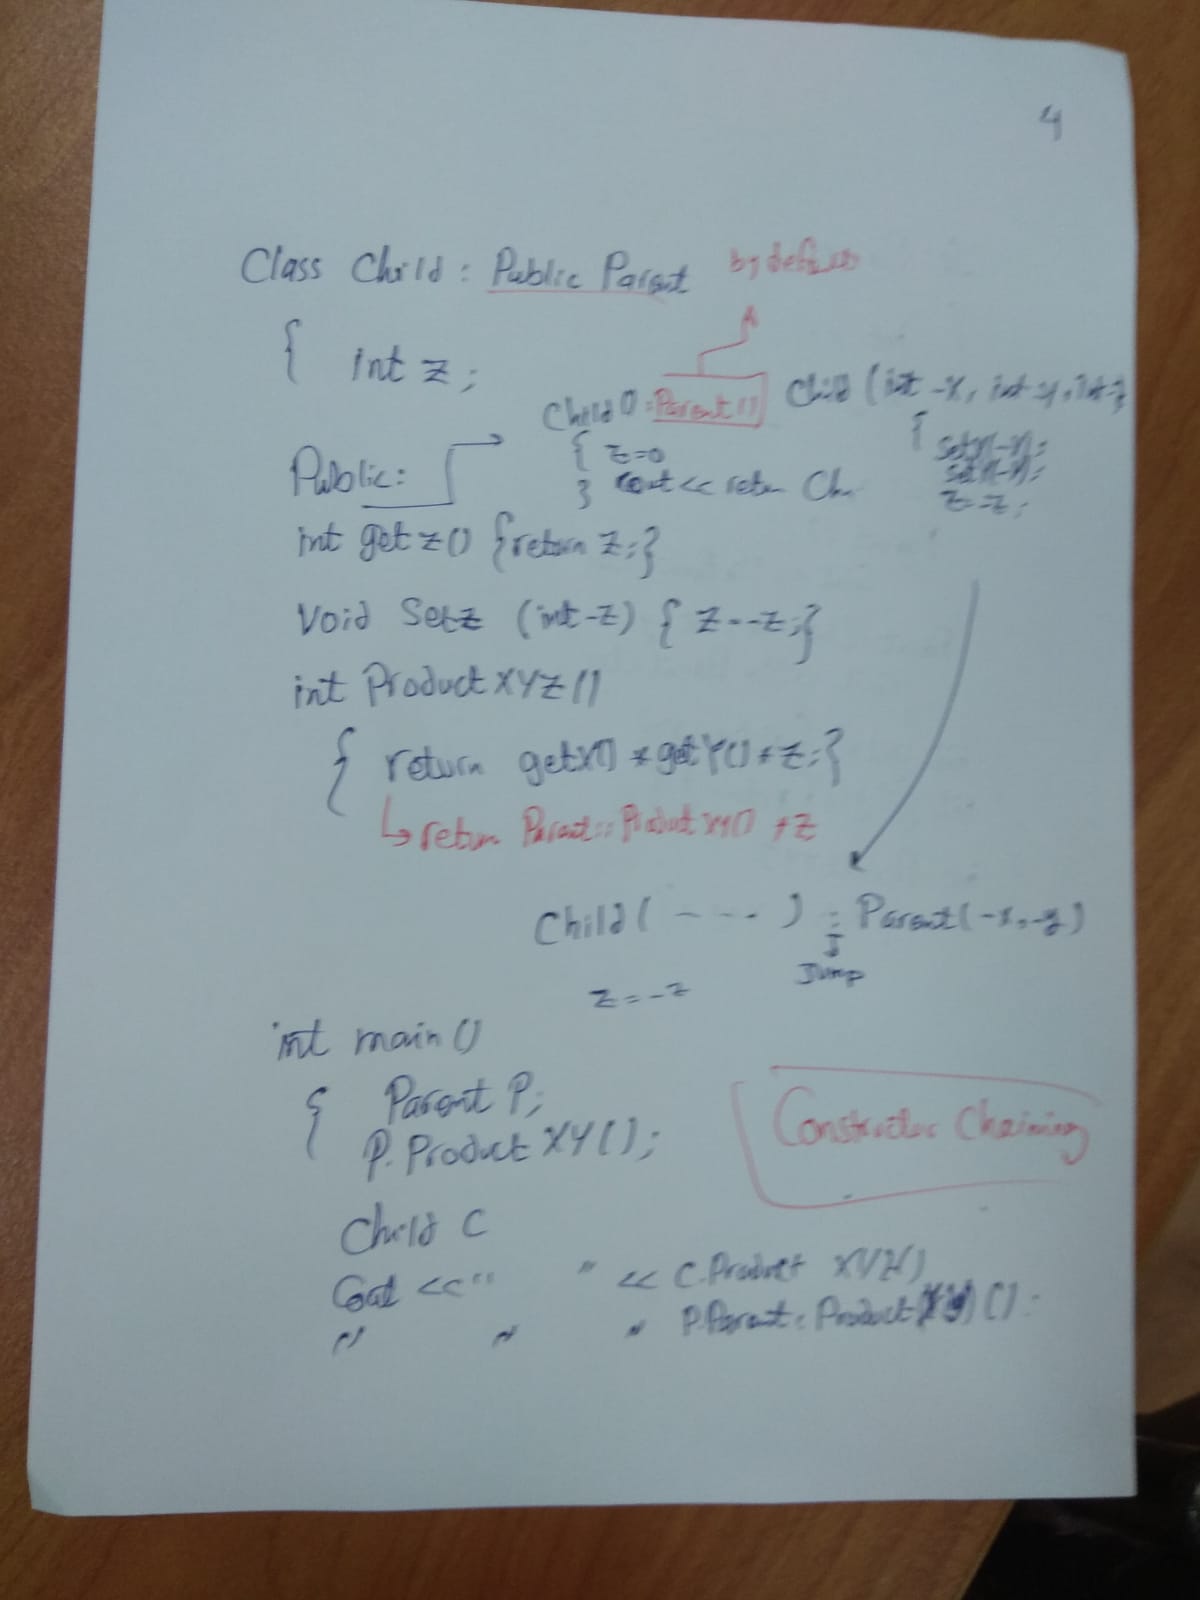 4
Class Child : Public Parent by default
{ int z;
Child() : Parent() Child (int -x, int -y, int -z
{ z=0 { setx(-x);
} cout << return Ch. set
z=-z;
Public:
int getz() {return z;}
Void Setz (int -z) { z=-z;}
int Product XYZ()
{ return getX() * getY() * z;}
↳ return Parent :: Product XY() * z
Child ( - - - - ) : Parent(-x, -y)
Jump
z=-z
int main()
{ Parent P;
P. Product XY();
Constructor Chaining
Child C
Cout <<" " << C.Product XYZ()
" " " P.Parent: Product XY() ();